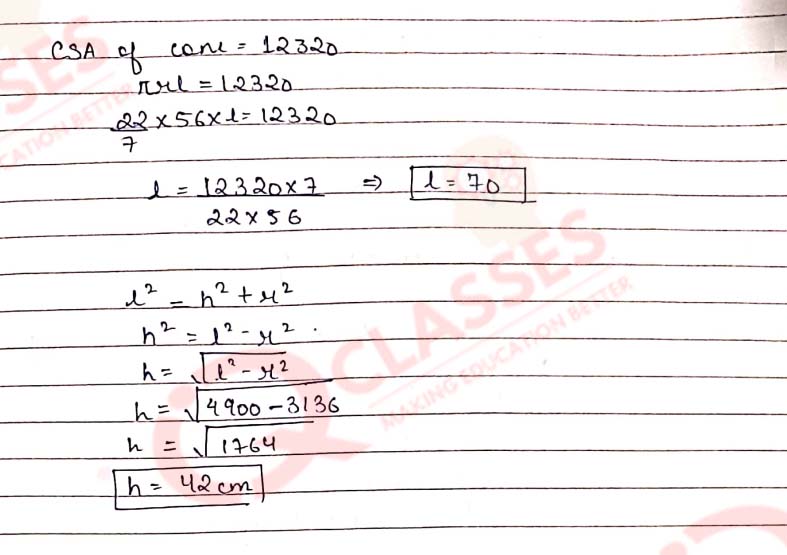 CSA of cone = 12320
πrl = 12320
22/7 × 56 × l = 12320
l = 12320 × 7 / 22 × 56 ⇒ l = 70
l² = h² + r²
h² = l² - r².
h = √l² - r²
h = √4900 - 3136
h = √1764
h = 42 cm
CLASSES
MAKING EDUCATION BETTER